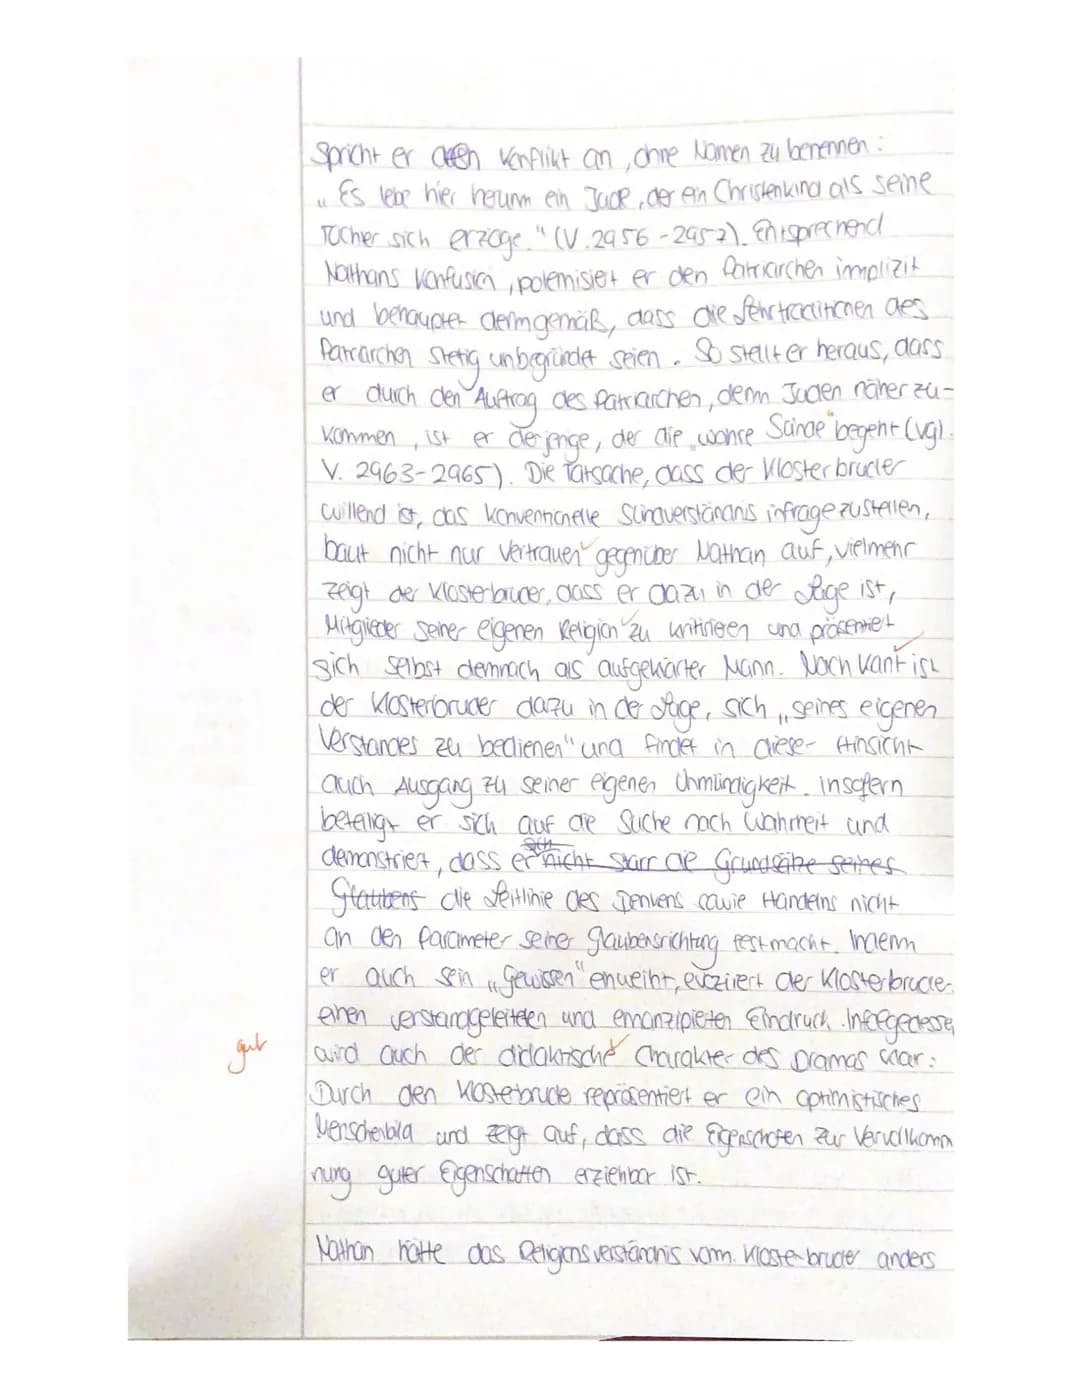 Spricht er den Konflikt an, ohne Namen zu benennen:
„Es lebe hier herum ein Jude, der ein Christenkind als seine
Tocher sich erzöge." (V. 2956-2957). Entsprechend
Nathans Konfusion, polemisiert er den Patriarchen implizit
und behauptet demgemäß, dass die Lehrtraditionen des
Patriarchen stetig unbegründet seien. So stellt er heraus, dass
er durch den Auftrag des Patriarchen, dem Juden näher zu-
kommen, ist er derjenige, der die „wahre Sünde" begeht (vgl.
V. 2963-2965). Die Tatsache, dass der Klosterbruder
willend ist, das konventionelle Sündverständnis infrage zustellen,
baut nicht nur Vertrauen gegenüber Nathan auf, vielmehr
zeigt der Klosterbruder, dass er dazu in der Lage ist,
Mitglieder seiner eigenen Religion zu kritisieren und präsentiert
sich selbst demnach als aufgeklärter Mann. Nach Kant ist
der Klosterbruder dazu in der Lage, sich „seines eigenen
Verstandes zu bedienen" und findet in dieser Hinsicht
auch Ausgang zu seiner eigenen Unmündigkeit. insofern
beteiligt er sich auf die Suche nach Wahrheit und
demonstriert, dass er nicht starr die Grundsätze seines
Glaubens die Leitlinie des Denkens sowie Handelns nicht
an den Parameter seiner Glaubensrichtung festmacht. Indem
er auch sein „Gewissen" einweiht, evoziiert der Klosterbruder
einen verstandgeleiteten und emanzipierten Eindruck. Infolgedessen
gut wird auch der didaktische Charakter des Dramas klar:
Durch den Klosterbruder repräsentiert er ein optimistisches
Menschenbild und zeigt auf, dass die Eigenschaften zur Vervollkomm
nung guter Eigenschaften erziehbar ist.
Nathan hätte das Religionsverständnis vom Klosterbruder anders